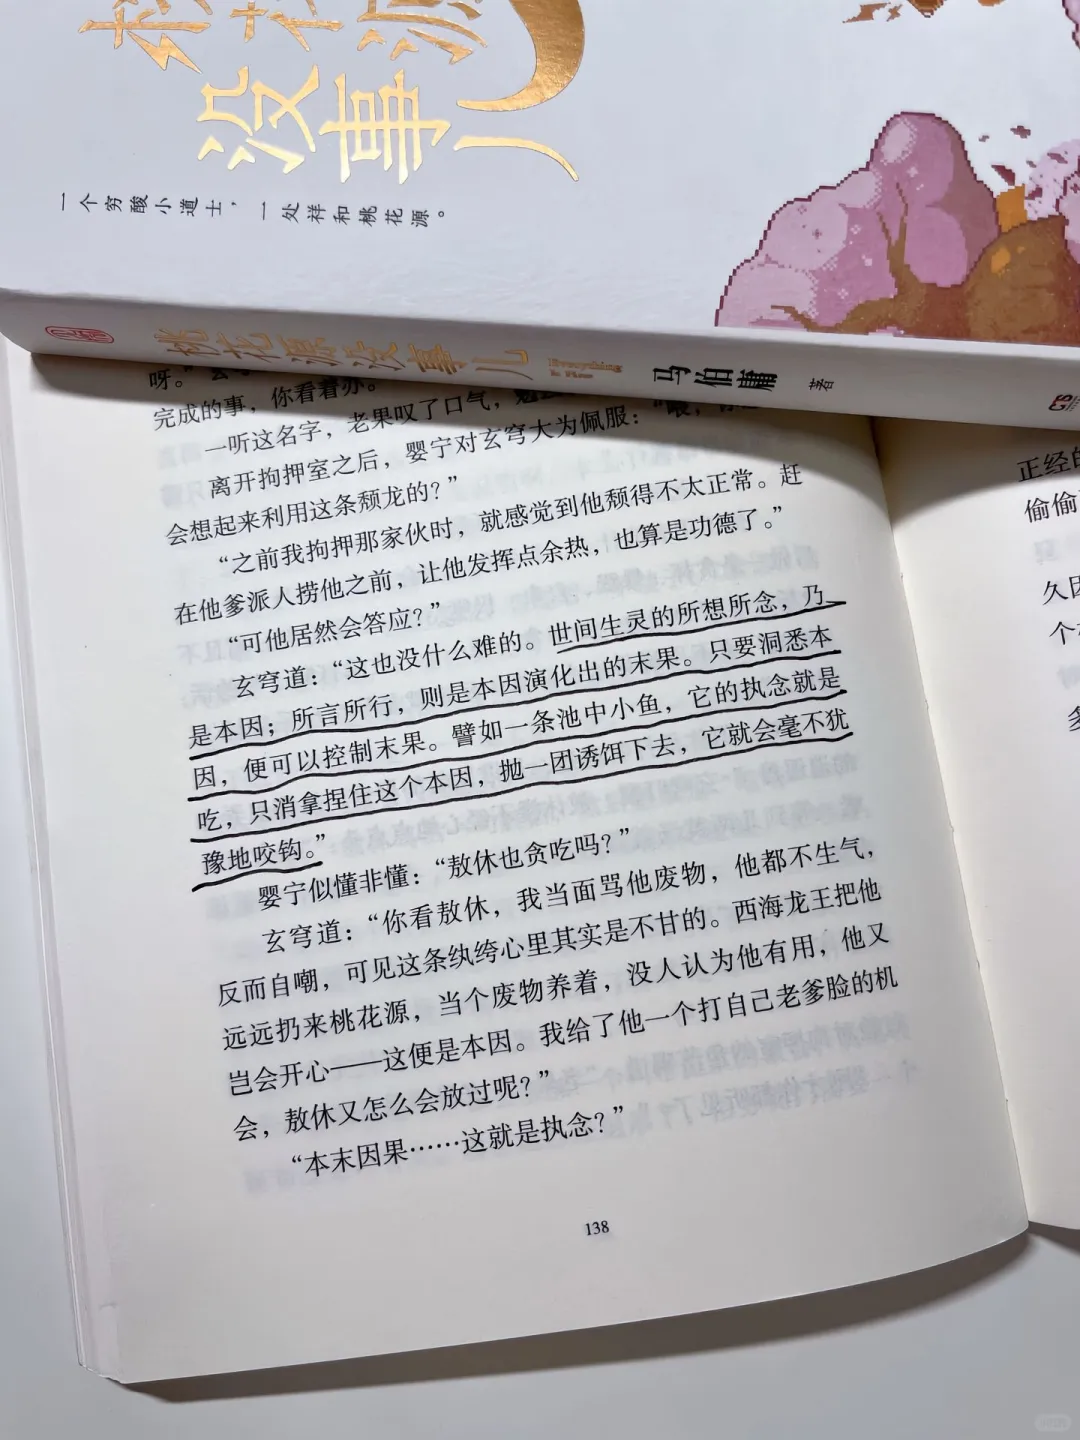 桃花源
没事儿
一个穷酸小道士，一处祥和桃花源。
桃花源没事儿
Everything
马伯庸 著
呀。”
完成的事，你看着办。”
一听这名字，老果叹了口气，
离开拘押室之后，婴宁对玄穹大为佩服：“喂，
会想起来利用这条颓龙的？”
“之前我拘押那家伙时，就感觉到他颓得不太正常。赶
在他爹派人捞他之前，让他发挥点余热，也算是功德了。”
“可他居然会答应？”
玄穹道：“这也没什么难的。世间生灵的所想所念，乃
是本因；所言所行，则是本因演化出的末果。只要洞悉本
因，便可以控制末果。譬如一条池中小鱼，它的执念就是
吃，只消拿捏住这个本因，抛一团诱饵下去，它就会毫不犹
豫地咬钩。”
婴宁似懂非懂：“敖休也贪吃吗？”
玄穹道：“你看敖休，我当面骂他废物，他都不生气，
反而自嘲，可见这条纨绔心里其实是不甘的。西海龙王把他
远远扔来桃花源，当个废物养着，没人认为他有用，他又
岂会开心——这便是本因。我给了他一个打自己老爹脸的机
会，敖休又怎么会放过呢？”
“本末因果……这就是执念？”
138
正经的
偷偷
久因
个